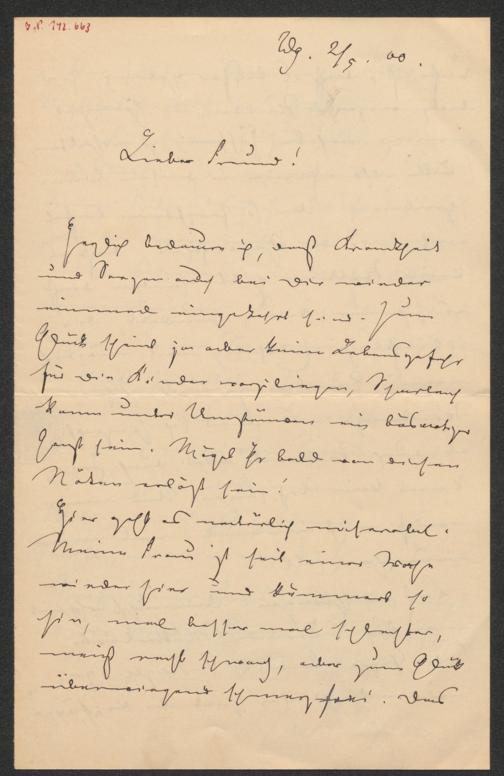 J.N. 192.663
Wg. 2/5. 00.
Lieber Freund!
Herzlich bedauere ich, daß Krankheit
und Sorgen auch bei Dir wieder
einmal eingekehrt sind. Zum
Glück scheint ja aber keine Lebensgefahr
für die Kinder vorzuliegen, Scharlach
kann unter Umständen ein bösartiger
Gast sein. Mögt Ihr bald von diesen
Nöten erlöst sein!
Hier geht es natürlich miserabel.
Meine Frau ist seit einer Woche
wieder hier und kümmert so
hin, mal besser mal schlechter,
meist recht schwach, aber zum Glück
überwiegend schmerzfrei. Das